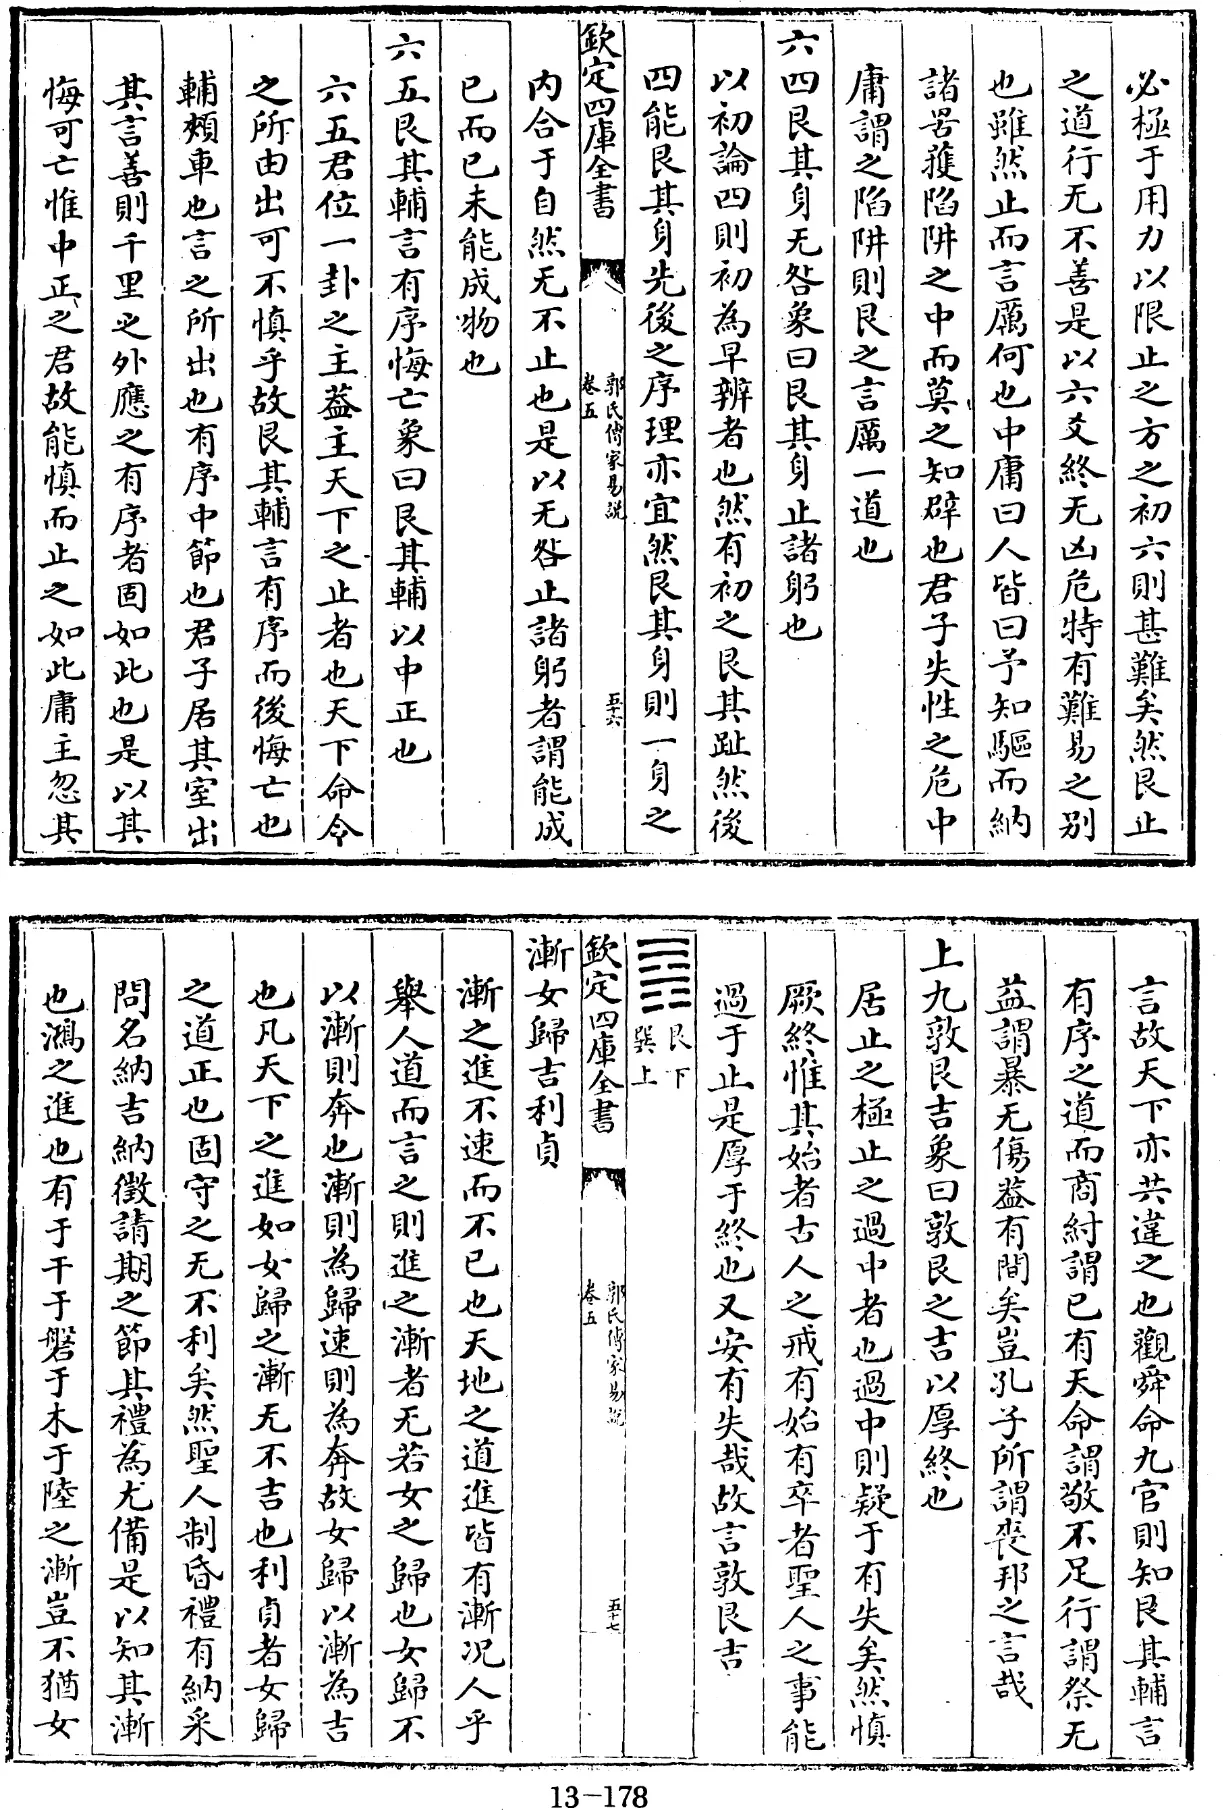 必極于用力以限止之方之初六則甚難矣然艮止
之道行无不善是以六爻終无凶危特有難易之别
也雖然止而言厲何也中庸曰人皆曰予知驅而納
諸罟擭陷阱之中而莫之知辟也君子失性之危中
庸謂之陷阱則艮之言厲一道也
六四艮其身无咎象曰艮其身止諸躬也
以初論四則初為早辨者也然有初之艮其趾然後
四能艮其身先後之序理亦宜然艮其身則一身之
欽定四庫全書
郭氏傳家易説
卷五
五十六
内合于自然无不止也是以无咎止諸躬者謂能成
已而已未能成物也
六五艮其輔言有序悔亡象曰艮其輔以中正也
六五君位一卦之主葢主天下之止者也天下命令
之所由出可不慎乎故艮其輔言有序而後悔亡也
輔頰車也言之所出也有序中節也君子居其室出
其言善則千里之外應之有序者固如此也是以其
悔可亡惟中正之君故能慎而止之如此庸主忽其
言故天下亦共違之也觀舜命九官則知艮其輔言
有序之道而商紂謂已有天命謂敬不足行謂祭无
益謂暴无傷葢有間矣豈孔子所謂喪邦之言哉
上九敦艮吉象曰敦艮之吉以厚終也
居止之極止之過中者也過中則疑于有失矣然慎
厥終惟其始者古人之戒有始有卒者聖人之事能
過于止是厚于終也又安有失哉故言敦艮吉
䷴艮下
巽上
欽定四庫全書
郭氏傳家易説
卷五
五十七
漸女歸吉利貞
漸之進不速而不已也天地之道進皆有漸况人乎
舉人道而言之則進之漸者无若女之歸也女歸不
以漸則奔也漸則為歸速則為奔故女歸以漸為吉
也凡天下之進如女歸之漸无不吉也利貞者女歸
之道正也固守之无不利矣然聖人制昏禮有納采
問名納吉納徵請期之節其禮為尤備是以知其漸
也鴻之進也有于干于磐于木于陸之漸豈不猶女
13-178